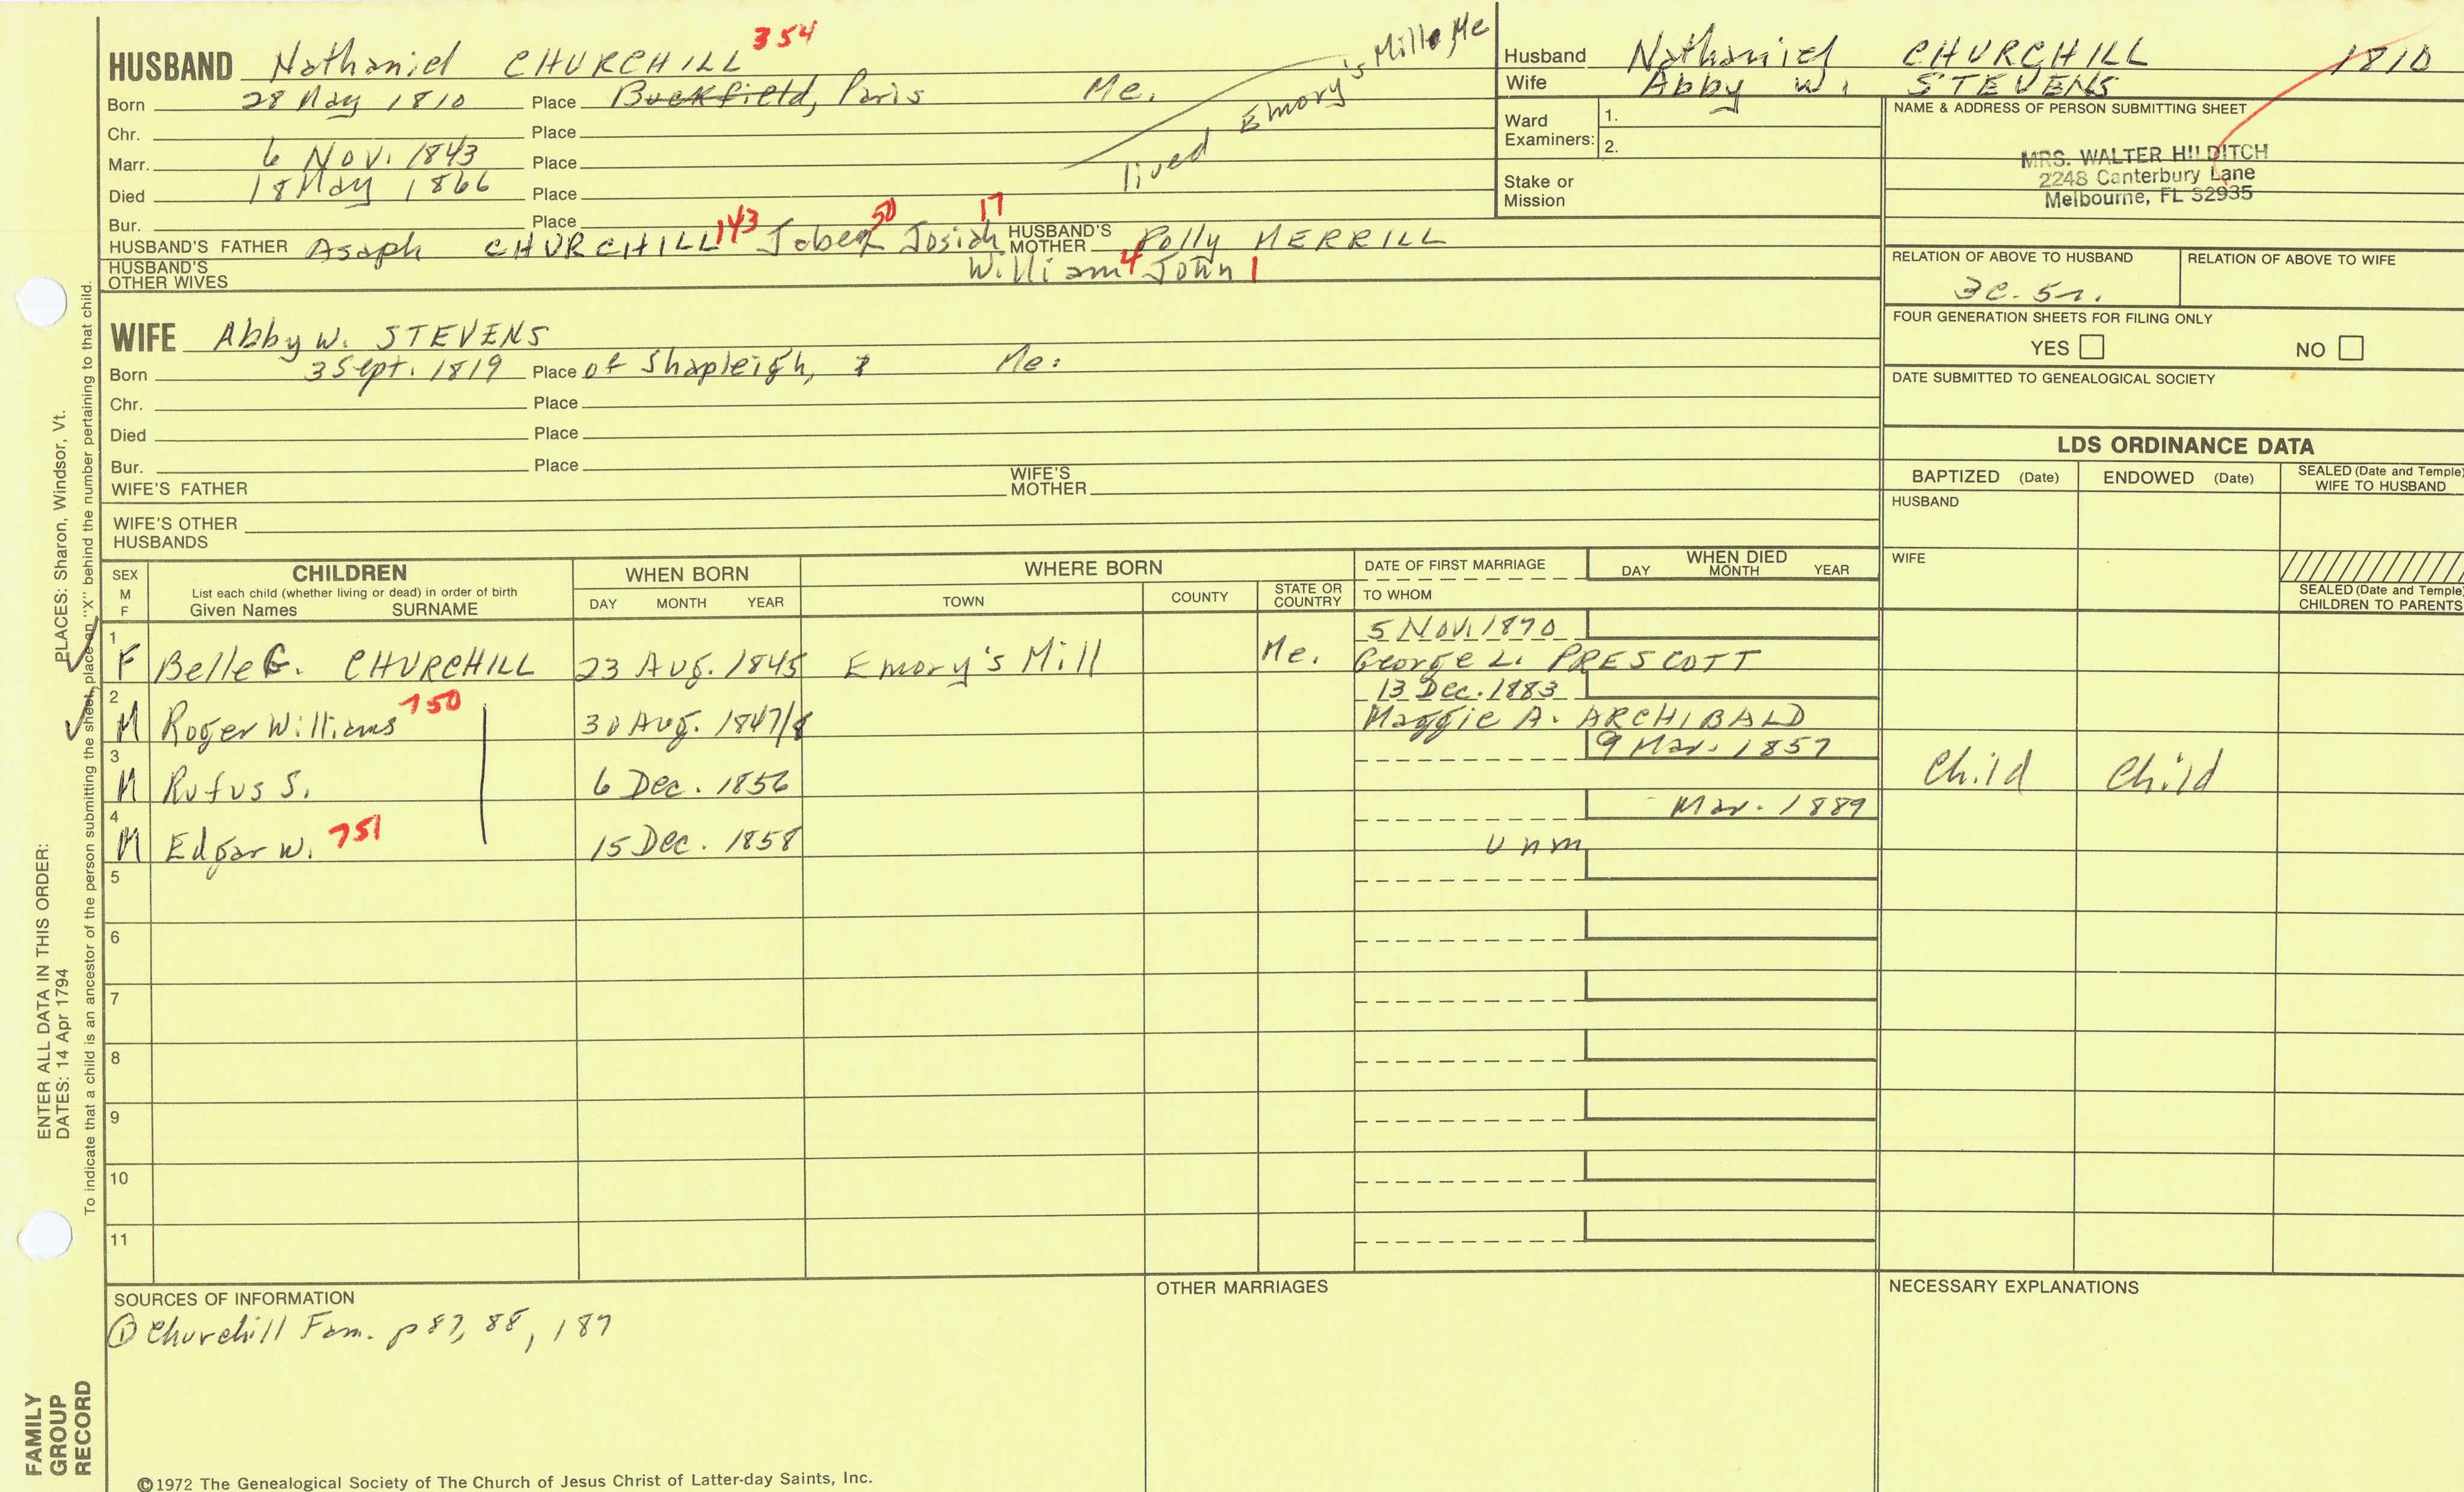 HUSBAND Nathaniel CHURCHILL 354
Born 28 May 1810 Place Buckfield, Paris Me.
Chr. Place
Marr. 6 Nov. 1843 Place
Died 18 May 1866 Place
Bur. Place
lived Emory's Mills Me
HUSBAND'S FATHER Asaph CHURCHILL 143 Jabez 50 Josiah 17 HUSBAND'S MOTHER Polly MERRILL
William 4 John 1
HUSBAND'S OTHER WIVES
Husband Nathaniel CHURCHILL 1810
Wife Abby W. STEVENS
Ward Examiners: 1.
2.
Stake or Mission
NAME & ADDRESS OF PERSON SUBMITTING SHEET
MRS. WALTER HILDITCH
2248 Canterbury Lane
Melbourne, FL 32935
RELATION OF ABOVE TO HUSBAND RELATION OF ABOVE TO WIFE
3c. 5r.
FOUR GENERATION SHEETS FOR FILING ONLY
YES NO
DATE SUBMITTED TO GENEALOGICAL SOCIETY
WIFE Abby W. STEVENS
Born 3 Sept. 1819 Place of Shapleigh, Me.
Chr. Place
Died Place
Bur. Place
WIFE'S FATHER WIFE'S MOTHER
WIFE'S OTHER HUSBANDS
LDS ORDINANCE DATA
BAPTIZED (Date) ENDOWED (Date) SEALED (Date and Temple) WIFE TO HUSBAND
HUSBAND
WIFE
SEALED (Date and Temple) CHILDREN TO PARENTS
SEX M F
CHILDREN
List each child (whether living or dead) in order of birth
Given Names SURNAME
WHEN BORN
DAY MONTH YEAR
WHERE BORN
TOWN COUNTY STATE OR COUNTRY
DATE OF FIRST MARRIAGE
TO WHOM
WHEN DIED
DAY MONTH YEAR
1 F Belle G. CHURCHILL 23 Aug. 1845 Emory's Mill Me. 5 Nov. 1870
George L. PRESCOTT
2 M Roger Williams 750 30 Aug. 1847/8 13 Dec. 1883
Maggie A. ARCHIBALD
3 M Rufus S. 6 Dec. 1856 9 Mar. 1857 Child Child
4 M Edgar W. 751 15 Dec. 1858 Mar. 1889
unm
5
6
7
8
9
10
11
SOURCES OF INFORMATION
① Churchill Fam. p 87, 88, 187
OTHER MARRIAGES
NECESSARY EXPLANATIONS
©1972 The Genealogical Society of The Church of Jesus Christ of Latter-day Saints, Inc.
FAMILY GROUP RECORD
ENTER ALL DATA IN THIS ORDER:
DATES: 14 Apr 1794
PLACES: Sharon, Windsor, Vt.
To indicate that a child is an ancestor of the person submitting the sheet, place an "X" behind the number pertaining to that child.